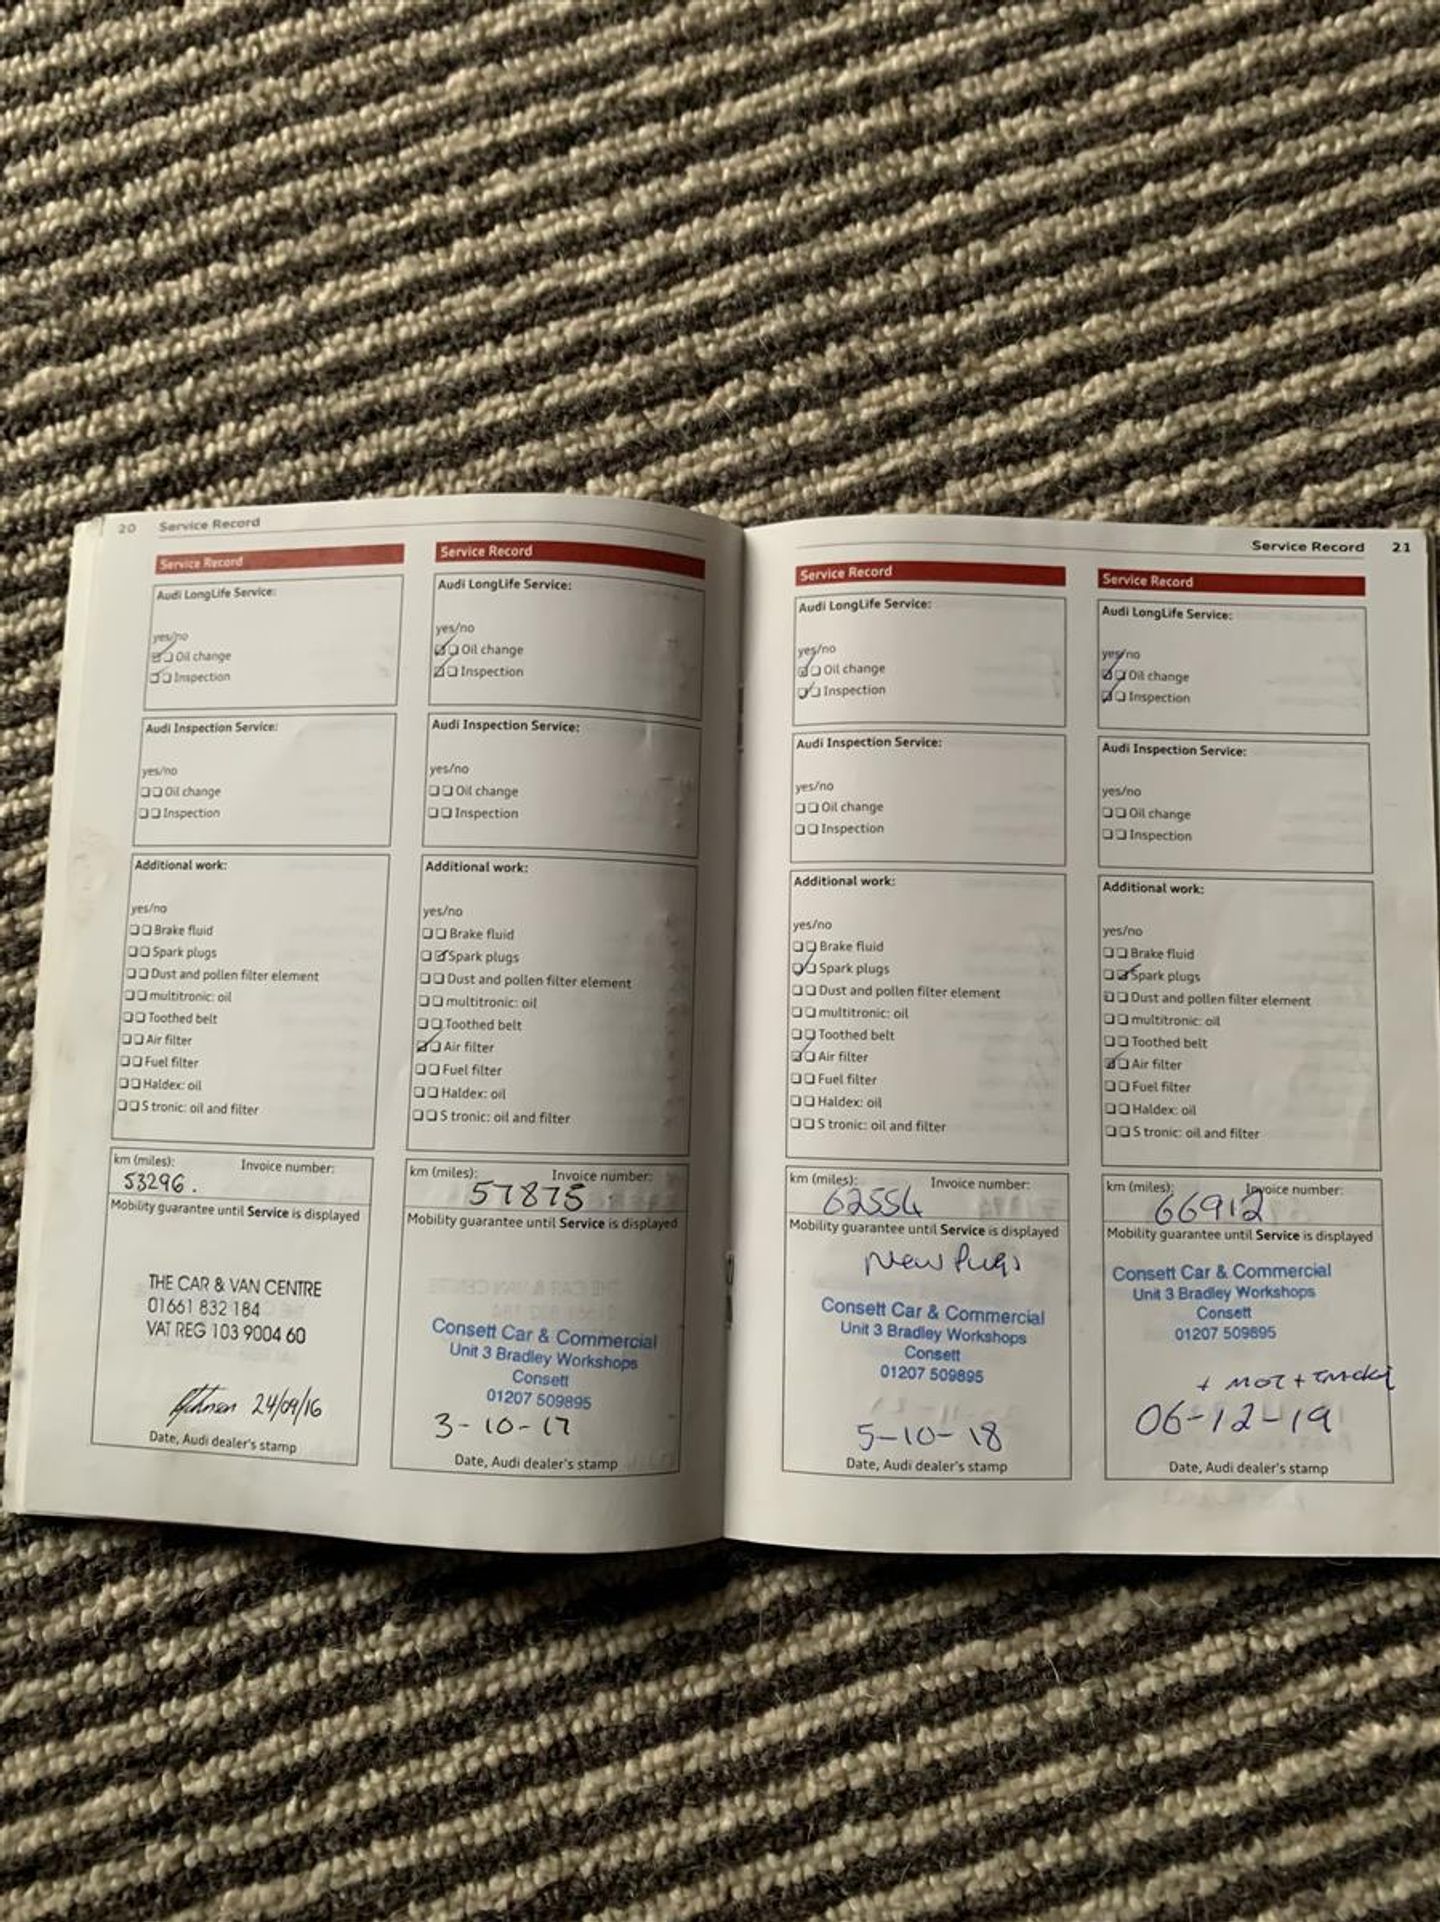 20 Service Record
Service Record
Audi LongLife Service:
yes/no
Oil change
Inspection
Audi Inspection Service:
yes/no
Oil change
Inspection
Additional work:
yes/no
Brake fluid
Spark plugs
Dust and pollen filter element
multitronic: oil
Toothed belt
Air filter
Fuel filter
Haldex: oil
S tronic: oil and filter
km (miles): Invoice number:
53296.
Mobility guarantee until Service is displayed
THE CAR & VAN CENTRE
01661 832 184
VAT REG 103 9004 60
24/09/16
Date, Audi dealer's stamp
Service Record
Audi LongLife Service:
yes/no
Oil change
Inspection
Audi Inspection Service:
yes/no
Oil change
Inspection
Additional work:
yes/no
Brake fluid
Spark plugs
Dust and pollen filter element
multitronic: oil
Toothed belt
Air filter
Fuel filter
Haldex: oil
S tronic: oil and filter
km (miles): Invoice number:
57875
Mobility guarantee until Service is displayed
Consett Car & Commercial
Unit 3 Bradley Workshops
Consett
01207 509895
3-10-17
Date, Audi dealer's stamp
Service Record 21
Service Record
Audi LongLife Service:
yes/no
Oil change
Inspection
Audi Inspection Service:
yes/no
Oil change
Inspection
Additional work:
yes/no
Brake fluid
Spark plugs
Dust and pollen filter element
multitronic: oil
Toothed belt
Air filter
Fuel filter
Haldex: oil
S tronic: oil and filter
km (miles): Invoice number:
62554
Mobility guarantee until Service is displayed
New Plugs
Consett Car & Commercial
Unit 3 Bradley Workshops
Consett
01207 509895
5-10-18
Date, Audi dealer's stamp
Service Record
Audi LongLife Service:
yes/no
Oil change
Inspection
Audi Inspection Service:
yes/no
Oil change
Inspection
Additional work:
yes/no
Brake fluid
Spark plugs
Dust and pollen filter element
multitronic: oil
Toothed belt
Air filter
Fuel filter
Haldex: oil
S tronic: oil and filter
km (miles): Invoice number:
66912
Mobility guarantee until Service is displayed
Consett Car & Commercial
Unit 3 Bradley Workshops
Consett
01207 509895
+ MOT +
06-12-19
Date, Audi dealer's stamp